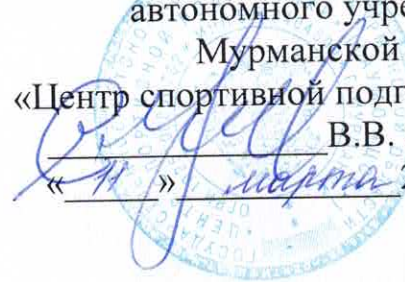 автономного учре
Мурманской
«Центр спортивной подг
В.В.
«11» марта